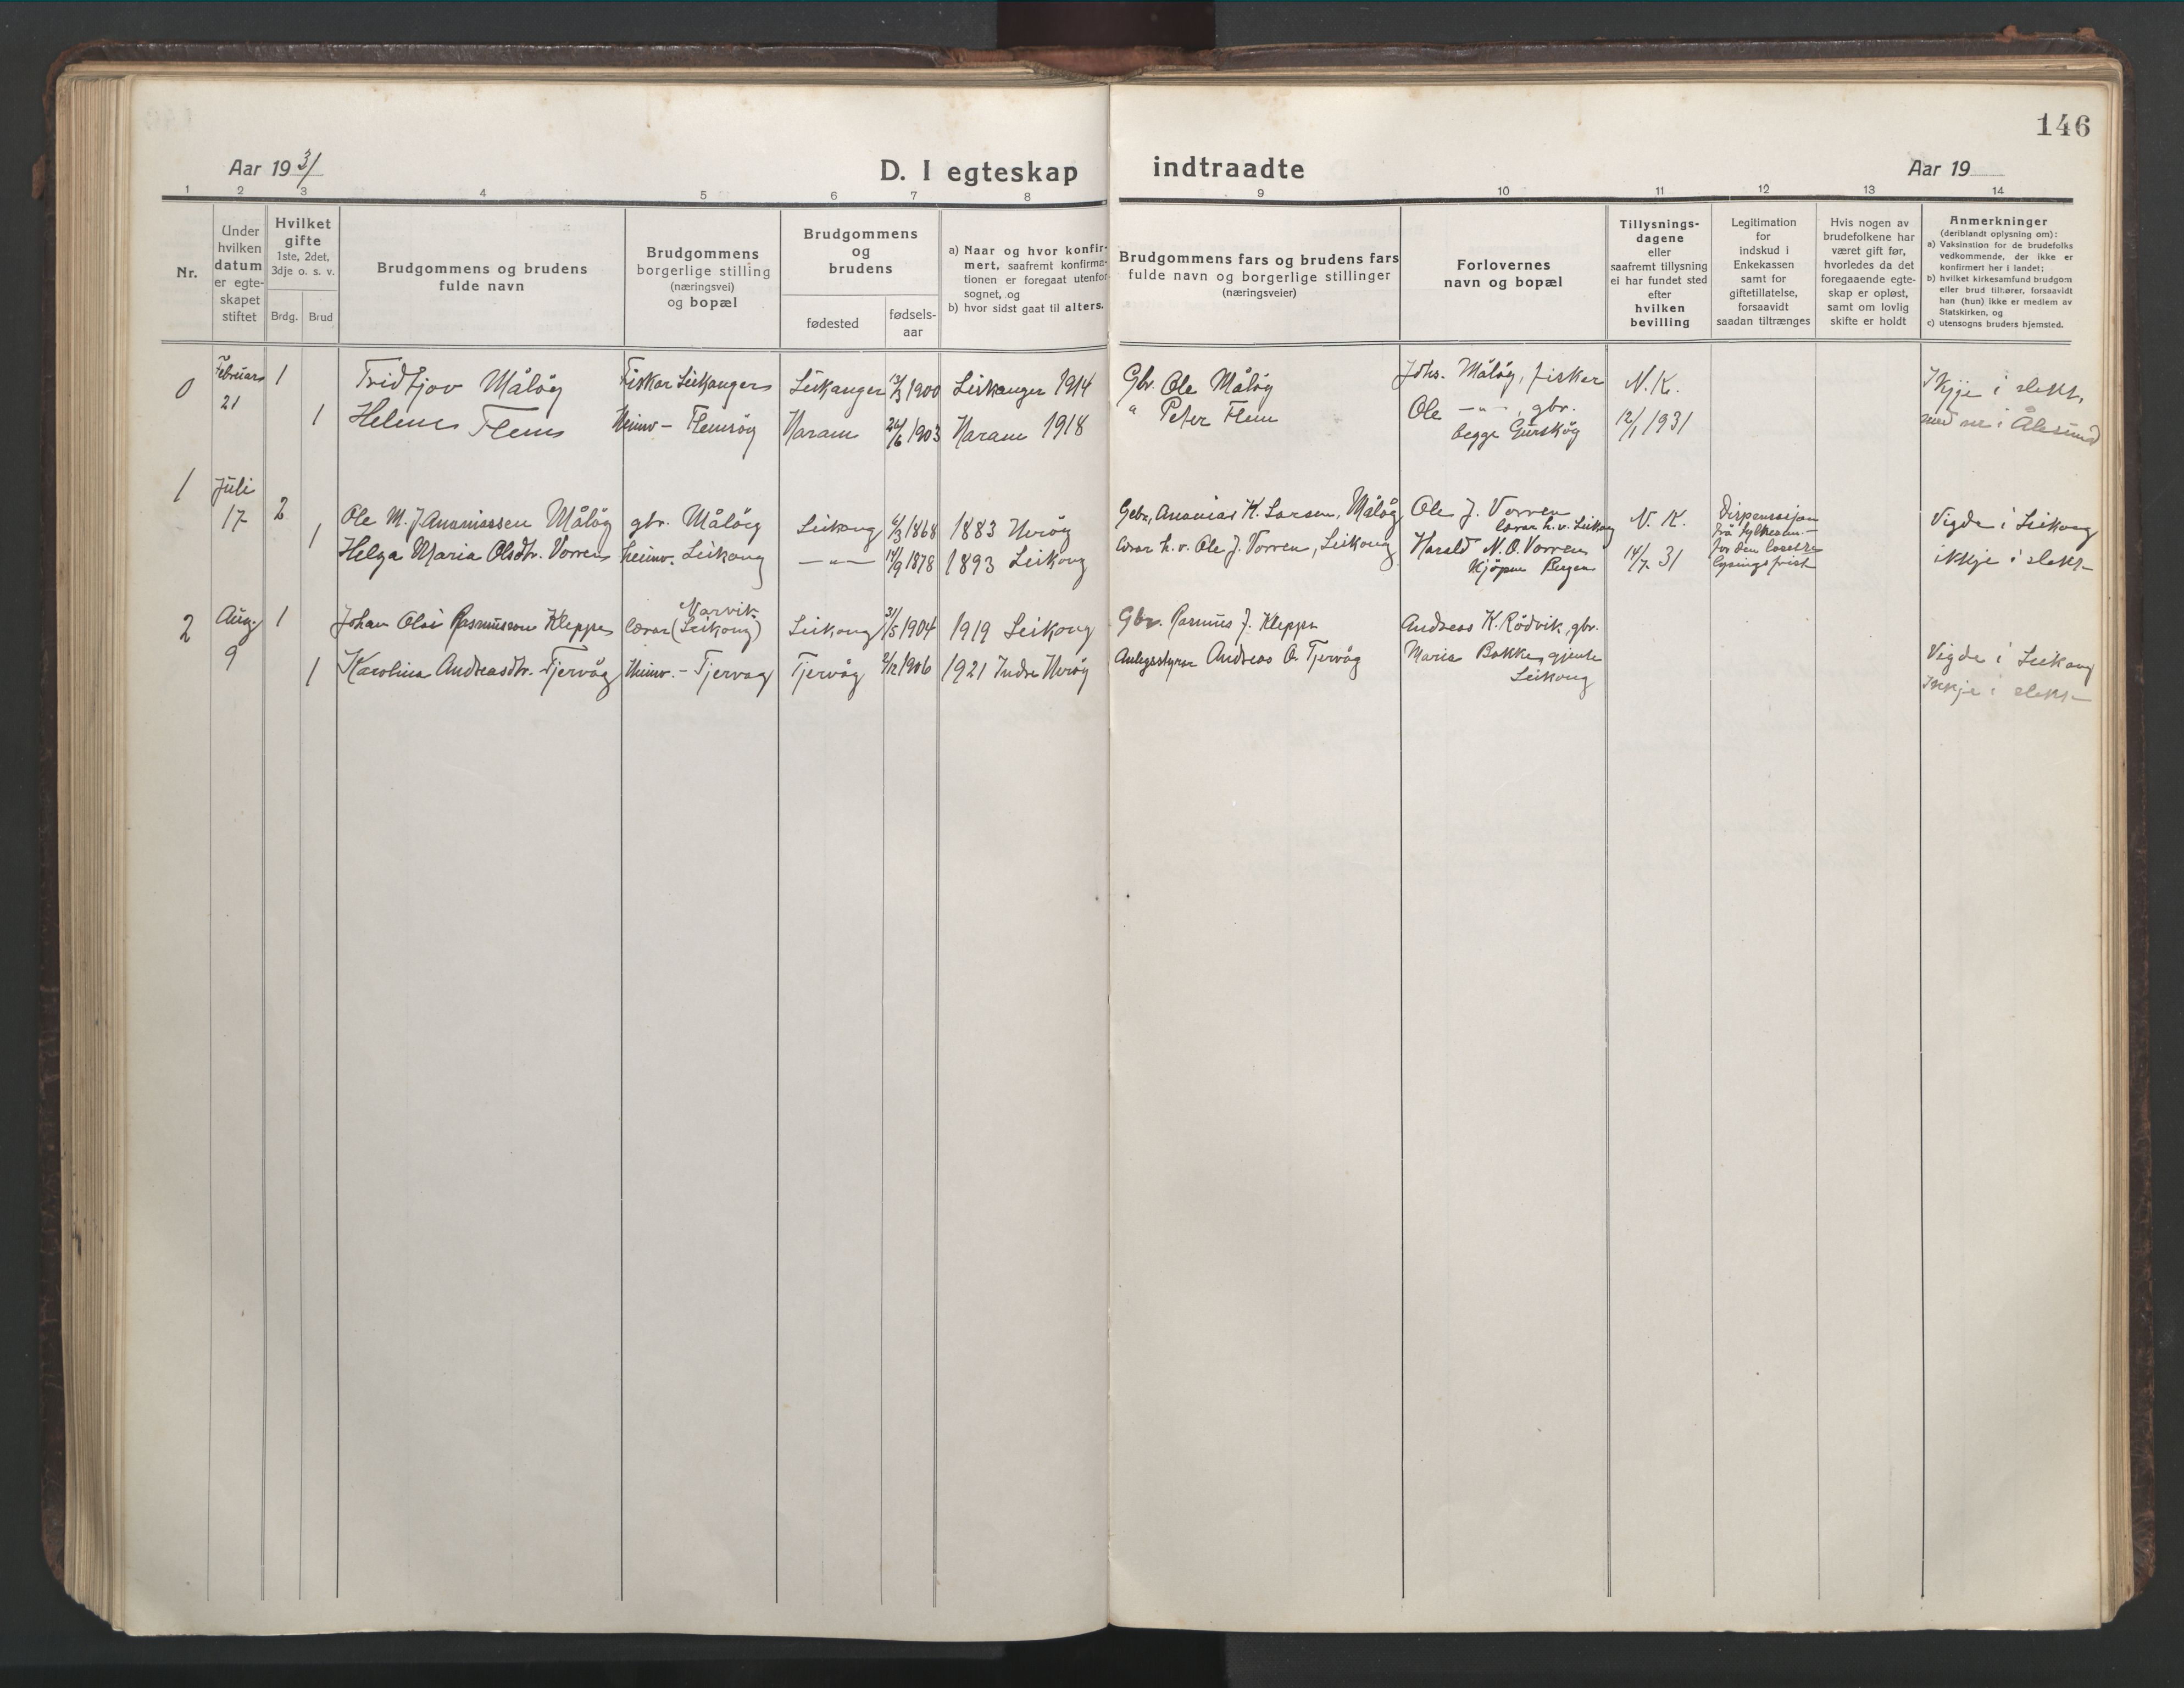 146
Aar 19 31
D. I egteskap indtraadte
Aar 19
1 2 3 4 5 6 7 8 9 10 11 12 13 14
Nr.
Under
hvilken
datum
er egte-
skapet
stiftet
Hvilket
gifte
1ste, 2det,
3dje o. s. v.
Brdg. Brud
Brudgommens og brudens
fulde navn
Brudgommens
borgerlige stilling
(næringsvei)
og bopæl
Brudgommens
og
brudens
fødested
fødsels-
aar
a) Naar og hvor konfir-
mert, saafremt konfirma-
tionen er foregaat utenfor
sognet, og
b) hvor sidst gaat til alters.
Brudgommens fars og brudens fars
fulde navn og borgerlige stillinger
(næringsveier)
Forlovernes
navn og bopæl
Tillysnings-
dagene
eller
saafremt tillysning
ei har fundet sted
efter
hvilken
bevilling
Legitimation
for
indskud i
Enkekassen
samt for
giftetillatelse,
forsaavidt
saadan tiltrænges
Hvis nogen av
brudefolkene har
været gift før,
hvorledes da det
foregaaende egte-
skap er opløst,
samt om lovlig
skifte er holdt
Anmerkninger
(deriblandt oplysning om):
a) Vaksination for de brudefolks
vedkommende, der ikke er
konfirmert her i landet;
b) hvilket kirkesamfund brudgom
eller brud tilhører, forsaavidt
han (hun) ikke er medlem av
Statskirken, og
c) utensogns bruders hjemsted.
0
Februar
21
1
Fridtjov Måløy
Fiskar Leikanger
Leikanger
1900
Leikanger 1914
Gbr. Ole Måløy
Johs. Måløy, fisker
N. K.
Ikkje i slekt,
1
Helene Flem
Heimv - Flemsøy
Haram
24/6 1903
Haram 1918
" Peter Flem
Ole -"-, gbr.
begge Gurskøy
12/1 1931
i Ålesund
1
Juli
17
2
Ole M. J Ananiassen Måløy
gbr. Måløy
Leikong
6/3 1868
1883 Herøy
Gbr. Ananias K. Larsen, Måløy
Ole J. Vorren
lærar h. v. Leikong
N. K.
Dispensasjon
frå fylkesm.
for den
lysingsfrist
Vigde i Leikong
1
Helga Maria Olsdtr. Vorren
heimv. Leikong
-"-
14/9 1878
1893 Leikong
lærar h. v. Ole J. Vorren, Leikong
Harald N. O. Vorren
Kjøpm Bergen
14/7 31
ikkje i slekt
2
Aug.
9
1
Johan Olai Rasmusson Kleppe
Narvik
lærar (Leikong)
Leikong
31/5 1904
1919 Leikong
Gbr. Rasmus J. Kleppe
Andreas K. Rødvik, gbr.
1
Karolina Andreasdtr. Tjervåg
Heimv. - Tjervåg
Tjervåg
2/12 1906
1921 Indre Herøy
Anlegsstyrar Andreas O. Tjervåg
Maria Bakke, gjente
Leikong
Vigde i Leikong
Ikkje i slekt